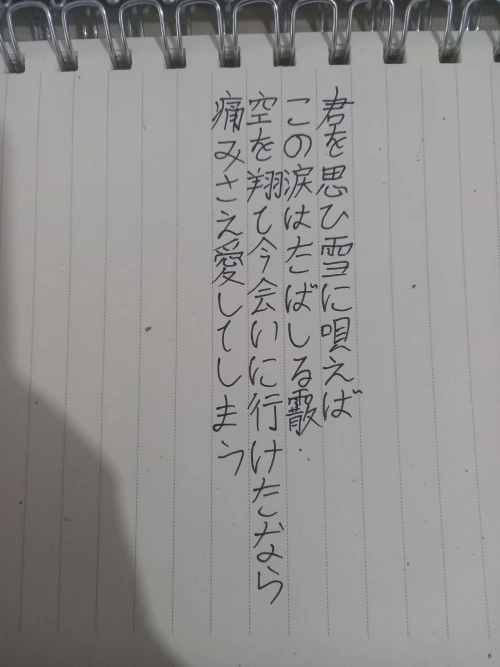 君を思ひ雪に唄えば
この涙はたばしる霰
空を翔て今会いに行けたなら
痛みさえ愛してしまう